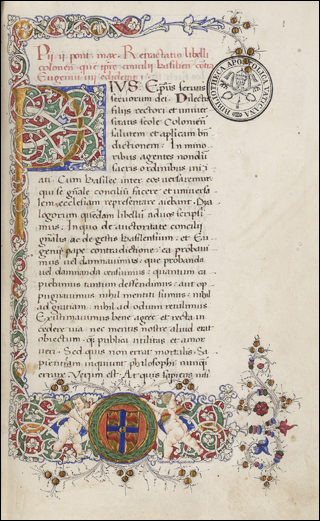 Pii ii pont. max. Retractatio libelli
colonien que pro concilii Basilien cōtra
Eugeniuȝ iiii ediderat
PIVS Ep̄us seruus
seruorum dei. Dilectis
filiis rectori et uniuer
sitatis scole Colonien̄
salutem et ap̄licam bn̄
dictionem. In mino
ribus agentes nondū
sacris ordinibus ini
ati. Cum Basilee inter eos uersaremur
qui se gn̄ale concilium facere et uniuersa
lem ecclesiam representare aiebant. Dia
logorum quendam libellū ad uos scripsi
mus. In quo de auctoritate concilii
gn̄alis ac de gestis Basiliensium. et Eu
genii pape contradictione. ea probaui
mus uel damnauimus. que probanda
uel damnanda censuimus. quantum ca
piebamus tantum deffendimus: aut op
pugnauimus. nihil mentiti sumus. nihil
ad gratiam. nihil ad odium retulimus
Existimauimus bene agere et recta in
cedere uia. nec mentis nostre aliud erat
obiectum. qȝ publica utilitas et amor
ueri. Sed quis non errat mortalis. Sa
pientiam inquiunt philosophi nunqȝ
errare. Verum est. At quis sapiens nisi
BIBLIOTHECA APOSTOLICA VATICANA